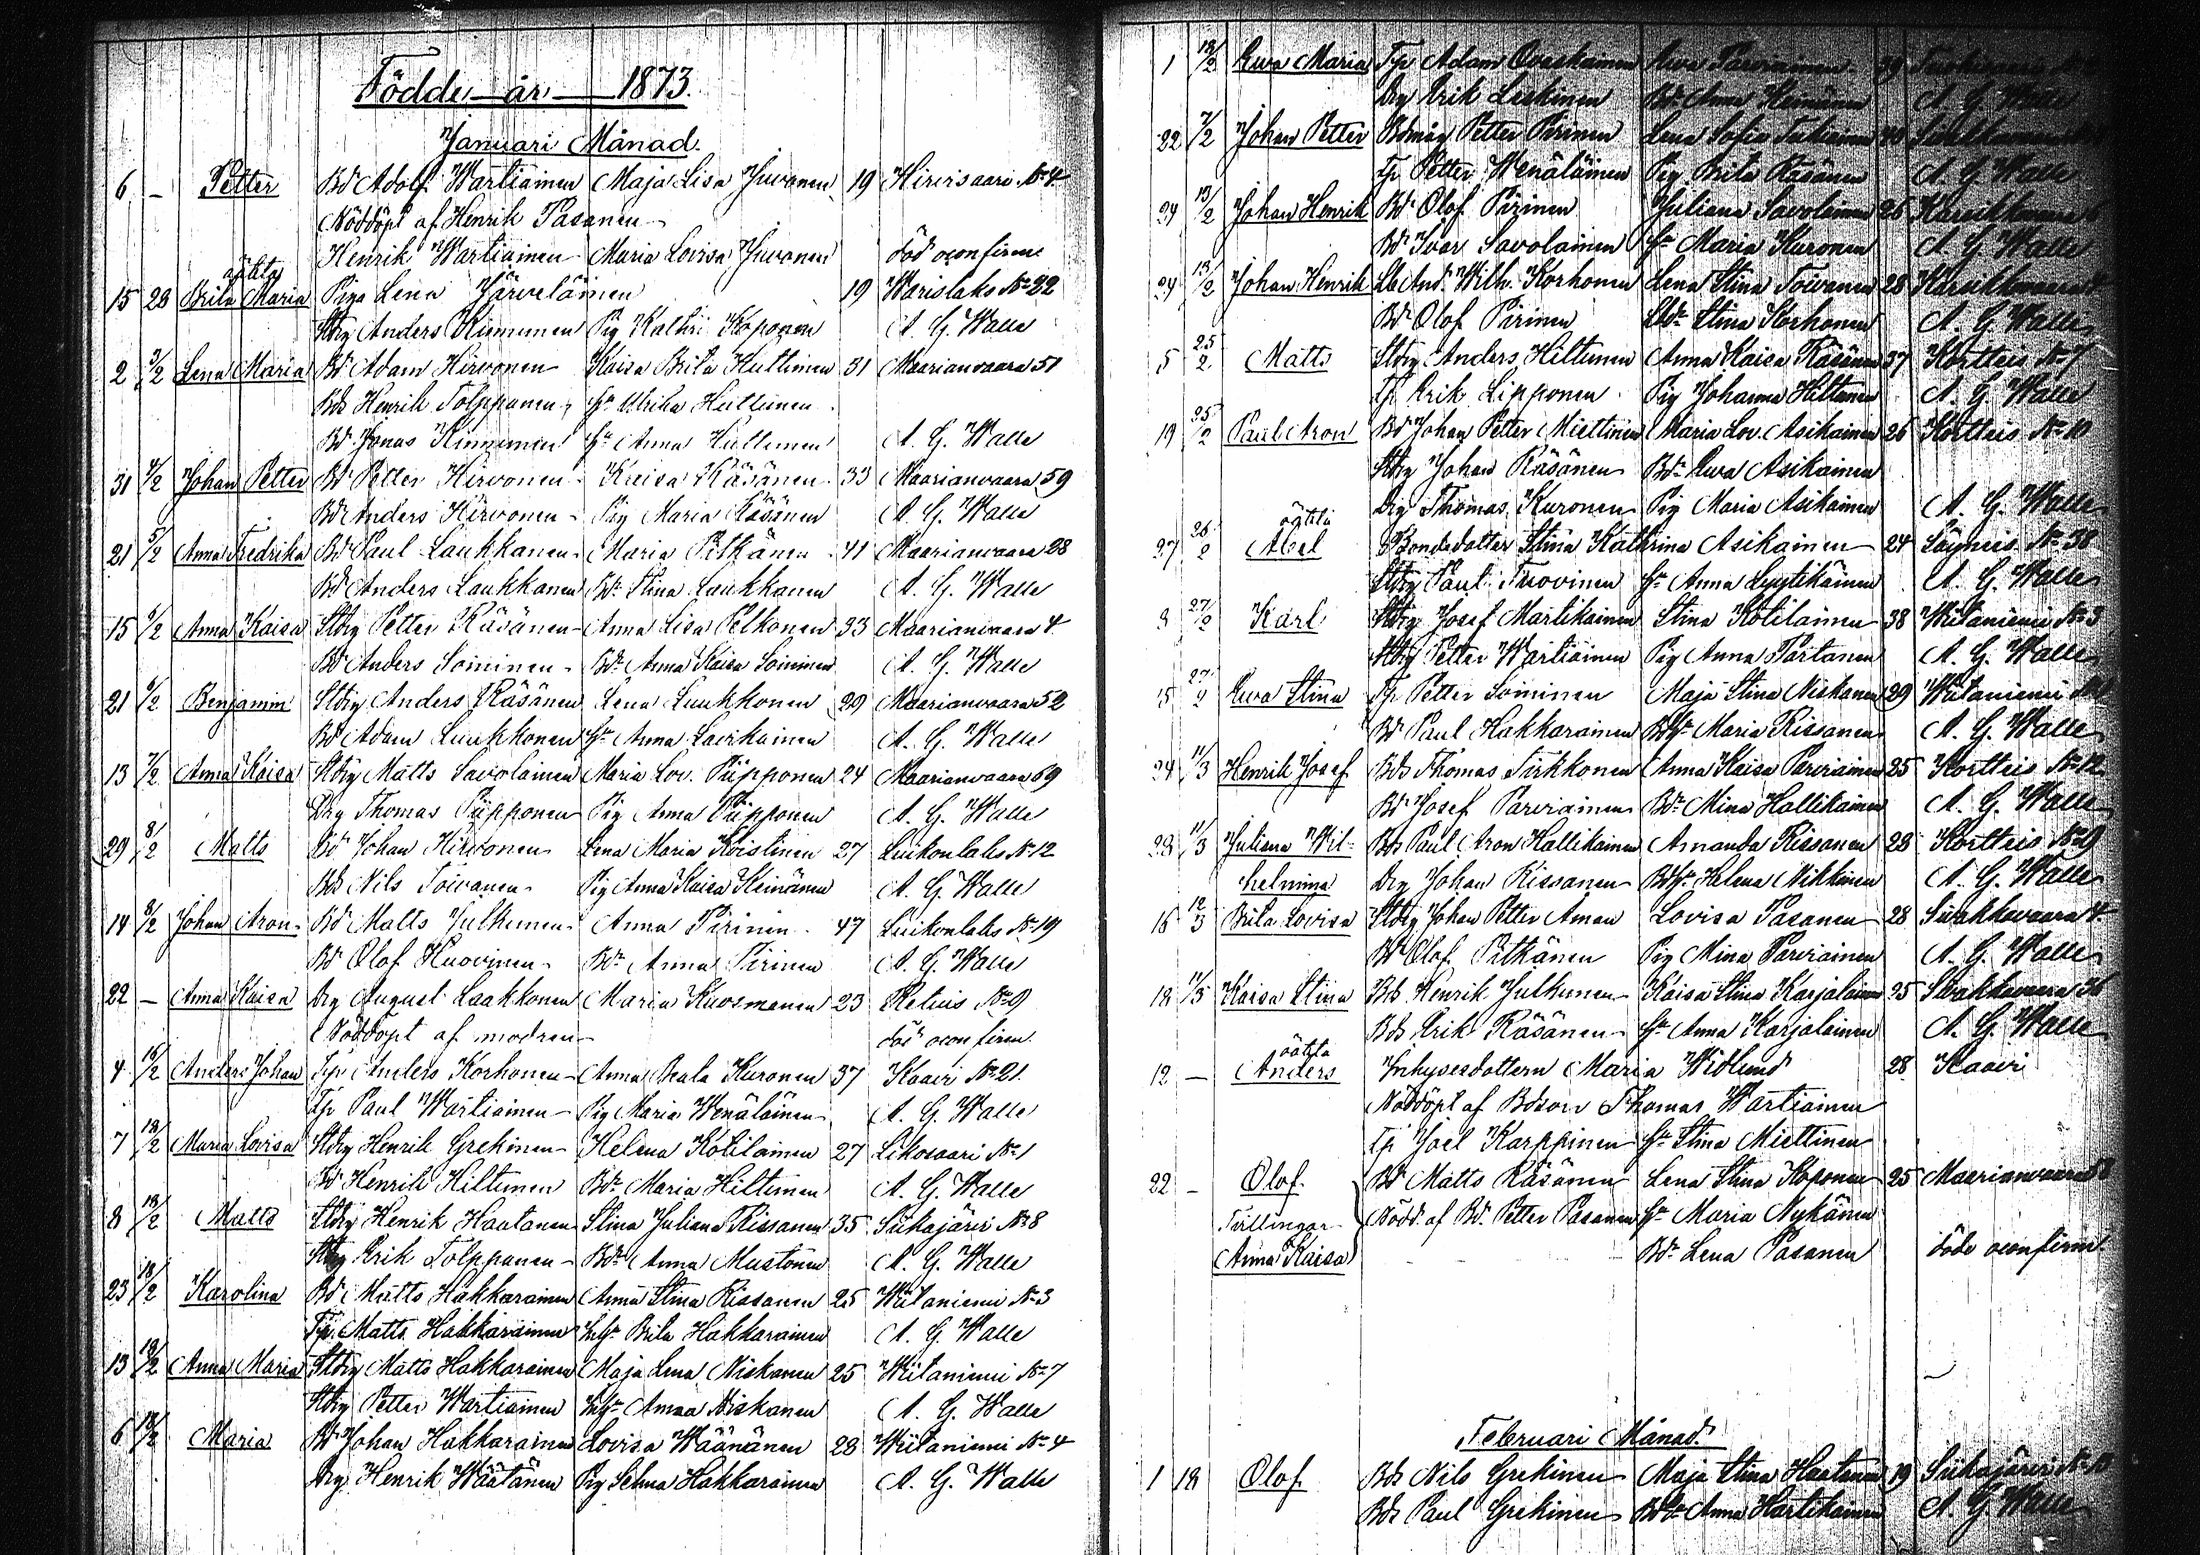 Födde år 1873.
Januari Månad.
6 – Petter Bd Adolf Wartiainen Maja Lisa Juvonen 19 Hirvisaari No 4
Nöddöpt af Henrik Pasanen
Henrik Wartiainen Maria Lovisa Juvonen död oconfirm
oäkta
15 28 Brita Maria Piga Lena Järveläinen 19 Warislaks No 22
Stdrg Anders Kinnunen Pig Kathri Koponen A. G. Walle
2 2/2 Lena Maria Bd Adam Hirvonen Kaisa Brita Huttunen 31 Maarianvaara 51
Bds Henrik Tolppanen hu Ulrika Huttunen
Bd Jonas Kinnunen hu Anna Huttunen A. G. Walle
31 4/2 Johan Petter Bd Petter Hirvonen Kaisa Räsänen 33 Maarianvaara 59
Bd Anders Hirvonen Pig Maria Räsänen A. G. Walle
21 5/2 Anna Fredrika Bd Paul Laukkanen Maria Pitkänen 41 Maarianvaara 28
Bd Anders Laukkanen Bdr Stina Laukkanen A. G. Walle
15 6/2 Anna Kaisa Stdrg Petter Räsänen Anna Lisa Pelkonen 33 Maarianvaara 4
Bd Anders Soininen Bdr Anna Kaisa Soininen A. G. Walle
21 6/2 Benjamin Stdrg Anders Räsänen Lena Luukkonen 29 Maarianvaara 52
Bd Adam Luukkonen hu Anna Lavikainen A. G. Walle
13 7/2 Anna Kaisa Stdrg Matts Savolainen Maria Lov. Piipponen 24 Maarianvaara 69
Drg Thomas Piipponen Pig Anna Piipponen A. G. Walle
29 8/2 Matts Bd Johan Hirvonen Lena Maria Koistinen 27 Luikonlaks No 12
Bds Nils Toivanen Pig Anna Kaisa Heinänen A. G. Walle
14 8/2 Johan Aron Bd Matts Julkunen Anna Pirinen 47 Luikonlaks No 19
Bd Olof Huovinen Bdr Anna Pirinen A. G. Walle
22 – Anna Kaisa Drg August Laakkonen Maria Kuosmanen 23 Retuis No 9
Nöddöpt af modren död oconfirm
4 16/2 Anders Johan Tp Anders Korhonen Anna Beata Kuronen 37 Kaavi No 21
Tp Paul Wartiainen Pig Maria Wenäläinen A. G. Walle
7 18/2 Maria Lovisa Stdrg Henrik Grekinen Helena Kotilainen 27 Likosaari No 1
Bd Henrik Hiltunen Bdr Maria Hiltunen A. G. Walle
8 18/2 Matts Stdrg Henrik Haatanen Stina Juliana Rissanen 35 Siikajärvi No 8
Stdrg Erik Tolppanen Bdr Anna Mustonen A. G. Walle
23 18/2 Karolina Bd Matts Hakkarainen Anna Stina Rissanen 25 Wiitaniemi No 3
Tp Matts Hakkarainen Brita Hakkarainen A. G. Walle
13 18/2 Anna Maria Stdrg Matts Hakkarainen Maja Lena Niskanen 25 Wiitaniemi No 7
Stdrg Petter Wartiainen Anna Niskanen A. G. Walle
6 18/2 Maria Bd Johan Hakkarainen Lovisa Wäänänen 28 Wiitaniemi No 4
Drg Henrik Wäätänen Pig Selma Hakkarainen A. G. Walle
1 18/2 Ewa Maria Tp Adam Ovaskainen Ewa 39
Drg Erik Leskinen Bdr Anna Heinänen A. G. Walle
22 7/2 Johan Petter Petter Pirinen Lena Sofia 40
Tp Petter Wenäläinen Pig Brita Räsänen A. G. Walle
24 13/2 Johan Henrik Bd Olof Pirinen Juliana Savolainen 26
Bd Ivar Savolainen hu Maria Kuronen A. G. Walle
24 13/2 Johan Henrik And. Wilh. Korhonen Lena Stina Toivanen 28
Bd Olof Pirinen Stina Korhonen A. G. Walle
5 25/2 Matts Stdrg Anders Hiltunen Anna Kaisa Räsänen 37 Kortteis No 7
Tp Erik Lipponen Pig Johanna Hiltunen A. G. Walle
19 25/2 Paul Aron Bd Johan Petter Miettinen Maria Lov. Asikainen 26 Kortteis No 10
Stdrg Johan Räsänen Bdr Ewa Asikainen
Drg Thomas Kuronen Pig Maria Asikainen A. G. Walle
oäkta
27 26/2 Abel Bondedotter Stina Kathrina Asikainen 24 Läyneis No 38
Stdrg Paul Tuovinen hu Anna Lyytikäinen A. G. Walle
3 27/2 Karl Stdrg Josef Martikainen Stina Kotilainen 38 Wiitaniemi No 3
Stdrg Petter Wartiainen Pig Anna Partanen A. G. Walle
15 27/2 Ewa Stina Tp Petter Soininen Maja Stina Niskanen 29 Wiitaniemi
Bd Paul Hakkarainen Bdhu Maria Rissanen A. G. Walle
24 11/3 Henrik Josef Bds Thomas Tirkkonen Anna Kaisa Parviainen 25 Kortteis No 12
Bd Josef Parviainen Bdr Mina Hallikainen A. G. Walle
28 11/3 Juliana Wil- Bds Paul Aron Hallikainen Amanda Rissanen 28 Kortteis No 9
helmina Drg Johan Rissanen Bdhu Helena Nikkinen A. G. Walle
16 12/3 Brita Lovisa Stdrg Johan Petter Aman Lovisa Pasanen 28 Sivakkavaara 4
Bd Olof Pitkänen Pig Mina Parviainen A. G. Walle
18 11/5 Kaisa Stina Bds Henrik Julkunen Kaisa Stina Karjalainen 25 Sivakkavaara 36
Bds Erik Räsänen hu Anna Karjalainen A. G. Walle
oäkta
12 – Anders Inhysesdottern Maria Widlund 28 Kaavi
Nöddöpt af Bdson Thomas Wartiainen
Tp Joel Karppinen hu Stina Miettinen
22 – Olof Bd Matts Räsänen Lena Stina Koponen 25 Maarianvaara
Tvillingar Nödd. af Bd. Petter Pasanen hu Maria Nykänen
Anna Kaisa Bdr Lena Pasanen döde oconfirm
Februari Månad.
1 18 Olof Bds Nils Grekinen Maja Stina Haatanen 19 Siikajärvi
Bds Paul Grekinen Bdr Anna Hartikainen A. G. Walle